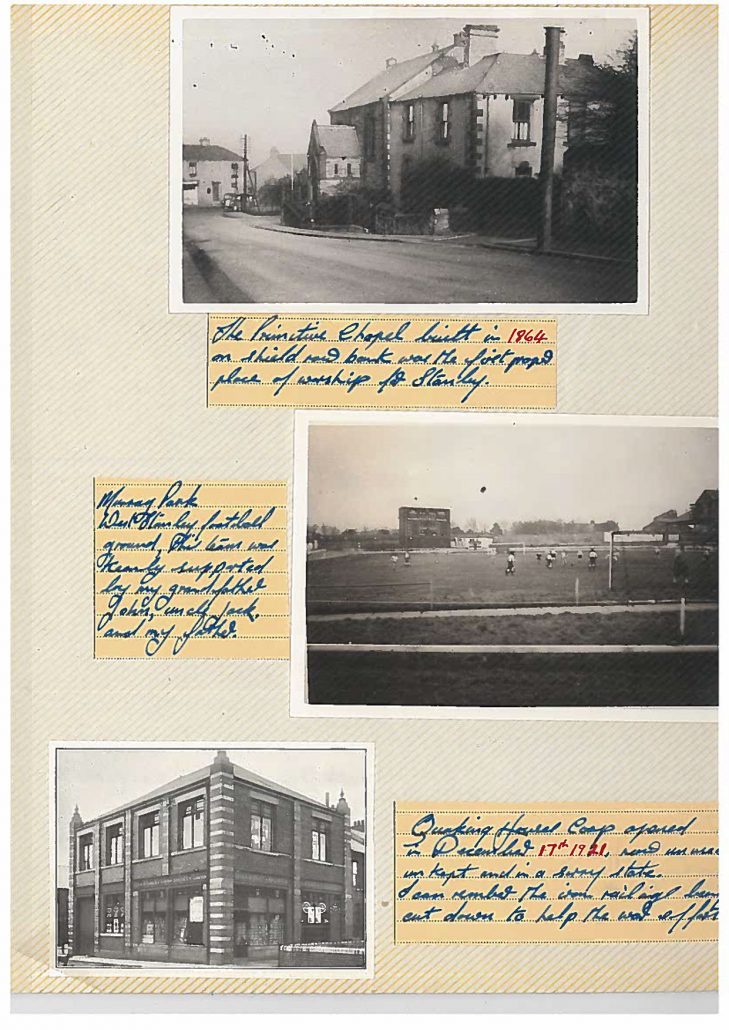 The Primitive Chapel built in 1864
on shield row bank was the first proper
place of worship for Stanley.
Murray Park
West Stanley football
ground. This team was
keenly supported
by my grandfather
John, uncle jack,
and my father.
Quaking Houses Coop opened
in December 17th 1921, now
un kept and in a sorry state.
I can rember the iron railings
cut down to help the war effort